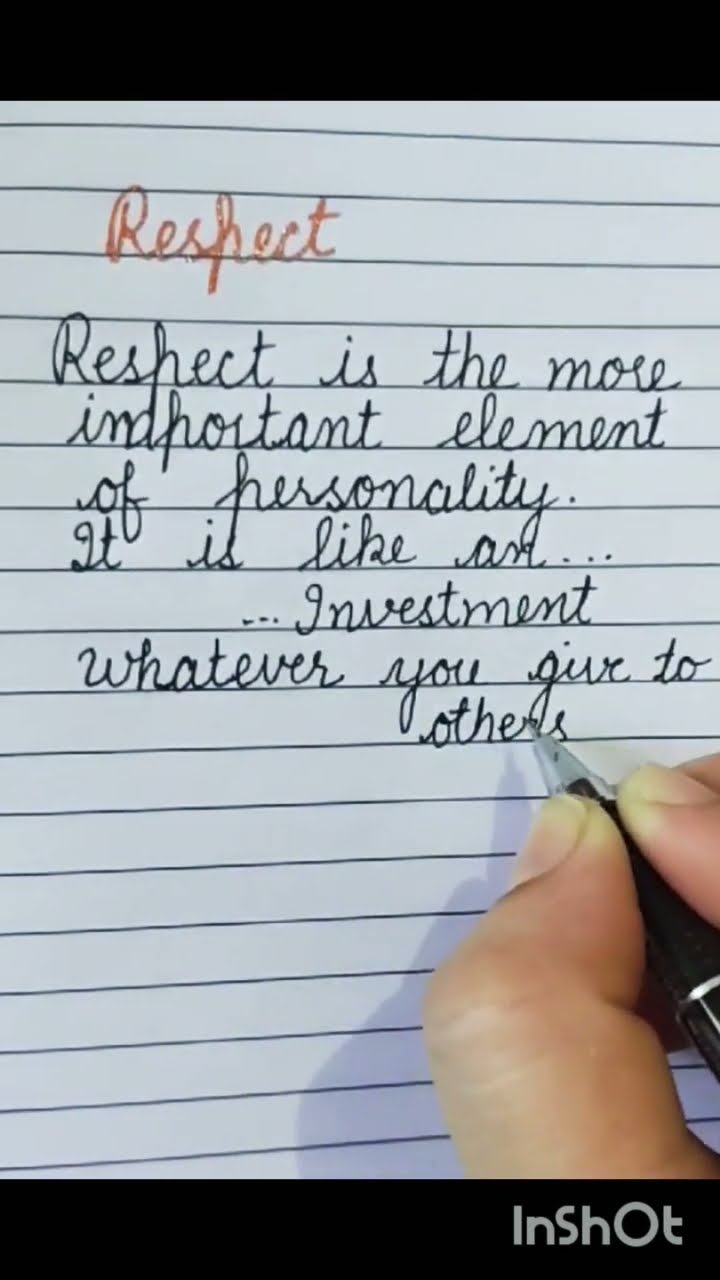 Respect
Respect is the more
important element
of personality.
It is like an...
...Investment
whatever you give to
others
InShOt